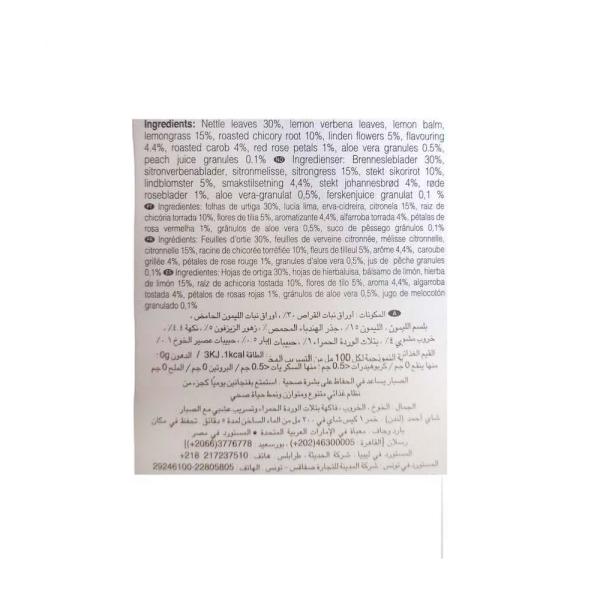 Ingredients: Nettle leaves 30%, lemon verbena leaves, lemon balm,
lemongrass 15%, roasted chicory root 10%, linden flowers 5%, flavouring
4.4%, roasted carob 4%, red rose petals 1%, aloe vera granules 0.5%,
peach juice granules 0.1% NO Ingredienser: Brennesleblader 30%,
sitronverbenablader, sitronmelisse, sitrongress 15%, stekt sikorirot 10%,
lindblomster 5%, smakstilsetning 4,4%, stekt johannesbrød 4%, røde
roseblader 1%, aloe vera-granulat 0,5%, ferskenjuice granulat 0,1 %
PT Ingredientes: folhas de urtiga 30%, lucia lima, erva-cidreira, citronela 15%, raiz de
chicória torrada 10%, flores de tília 5%, aromatizante 4,4%, alfarroba torrada 4%, pétalas de
rosa vermelha 1%, grânulos de aloe vera 0,5%, suco de pêssego grânulos 0,1%
FR Ingrédients: Feuilles d'ortie 30%, feuilles de verveine citronnée, mélisse citronnelle,
citronnelle 15%, racine de chicorée torréfiée 10%, fleurs de tilleul 5%, arôme 4,4%, caroube
grillée 4%, pétales de rose rouge 1%, granules d'aloe vera 0,5%, jus de pêche granules
0,1% ES Ingredientes: Hojas de ortiga 30%, hojas de hierbaluisa, bálsamo de limón, hierba
de limón 15%, raíz de achicoria tostada 10%, flores de tilo 5%, aroma 4,4%, algarroba
tostada 4%, pétalos de rosas rojas 1%, gránulos de aloe vera 0,5%, jugo de melocotón
granulado 0,1%
A المكونات: أوراق نبات القراص ٣٠٪، أوراق نبات الليمون الحامض،
بلسم الليمون، الليمون ١٥٪، جذر الهندباء المحمص٪، زهور الزيزفون ٥٪، نكهة ٤.٤٪،
خروب مشوي ٤٪، بتلات الوردة الحمراء ١٪، حبيبات ٠.٥٪، حبيبات عصير الخوخ ٠.١٪
القيم الغذائية النموذجية لكل 100 مل من الطاقة 3KJ .1kcal / الدهون 0g
منها ينقع 0 جم / كربوهيدرات <0.5 جم : منها السكريات <0.5 جم / البروتين 0 جم / الملح 0 جم
الصبار يساعد في الحفاظ على بشرة صحية . استمتع بفنجانين يومياً كجزء من
نظام غذائي متنوع ومتوازن ونمط حياة صحي
الجمال . الخوخ . الخروب . فاكهة بتلات الوردة الحمراء وتسريب عشبي مع الصبار
شاي أحمد (لندن) . خمر ١ كيس شاي في ٢٠٠ مل من الماء الساخن لمدة ٥ دقائق . تحفظ في مكان
بارد وجاف . معبأة في الإمارات العربية المتحدة • المستورد في مصر
رسلان [القاهرة : 46300005(202+) .بورسعيد : 3776778(2066+)]
المستورد في ليبيا . شركة الحديثة . طرابلس . هاتف 217237510 218+
المستورد في تونس . شركة المدينة للتجارة صفاقس . تونس . الهاتف : 22805805-29246100